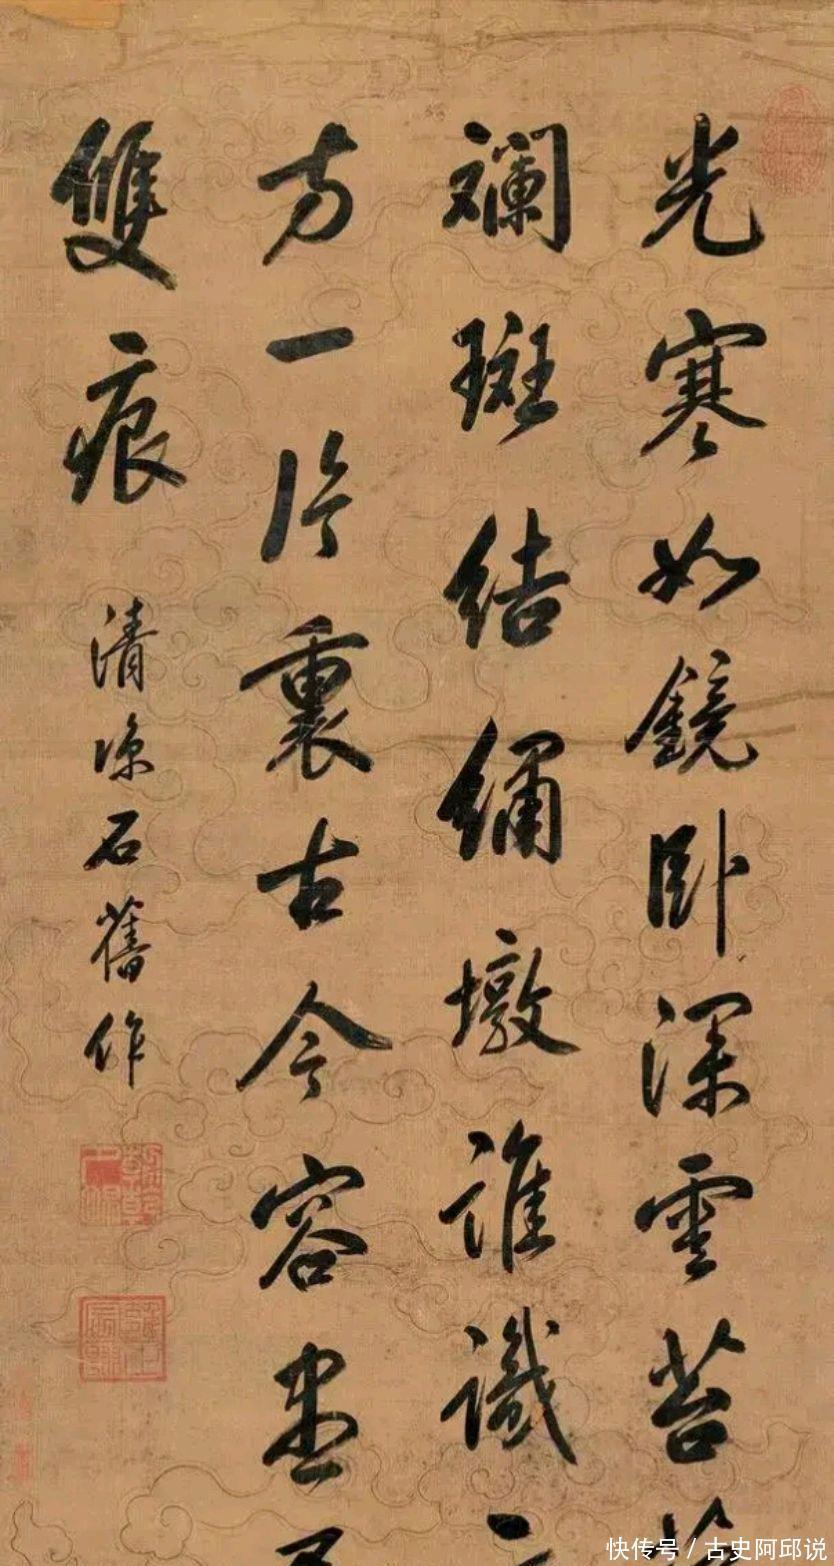 光寒如鏡卧深雲苔
斕斑結繡墩誰識
方一片裏古今容
雙痕
清涼石舊作
快传号 / 古史阿邱说